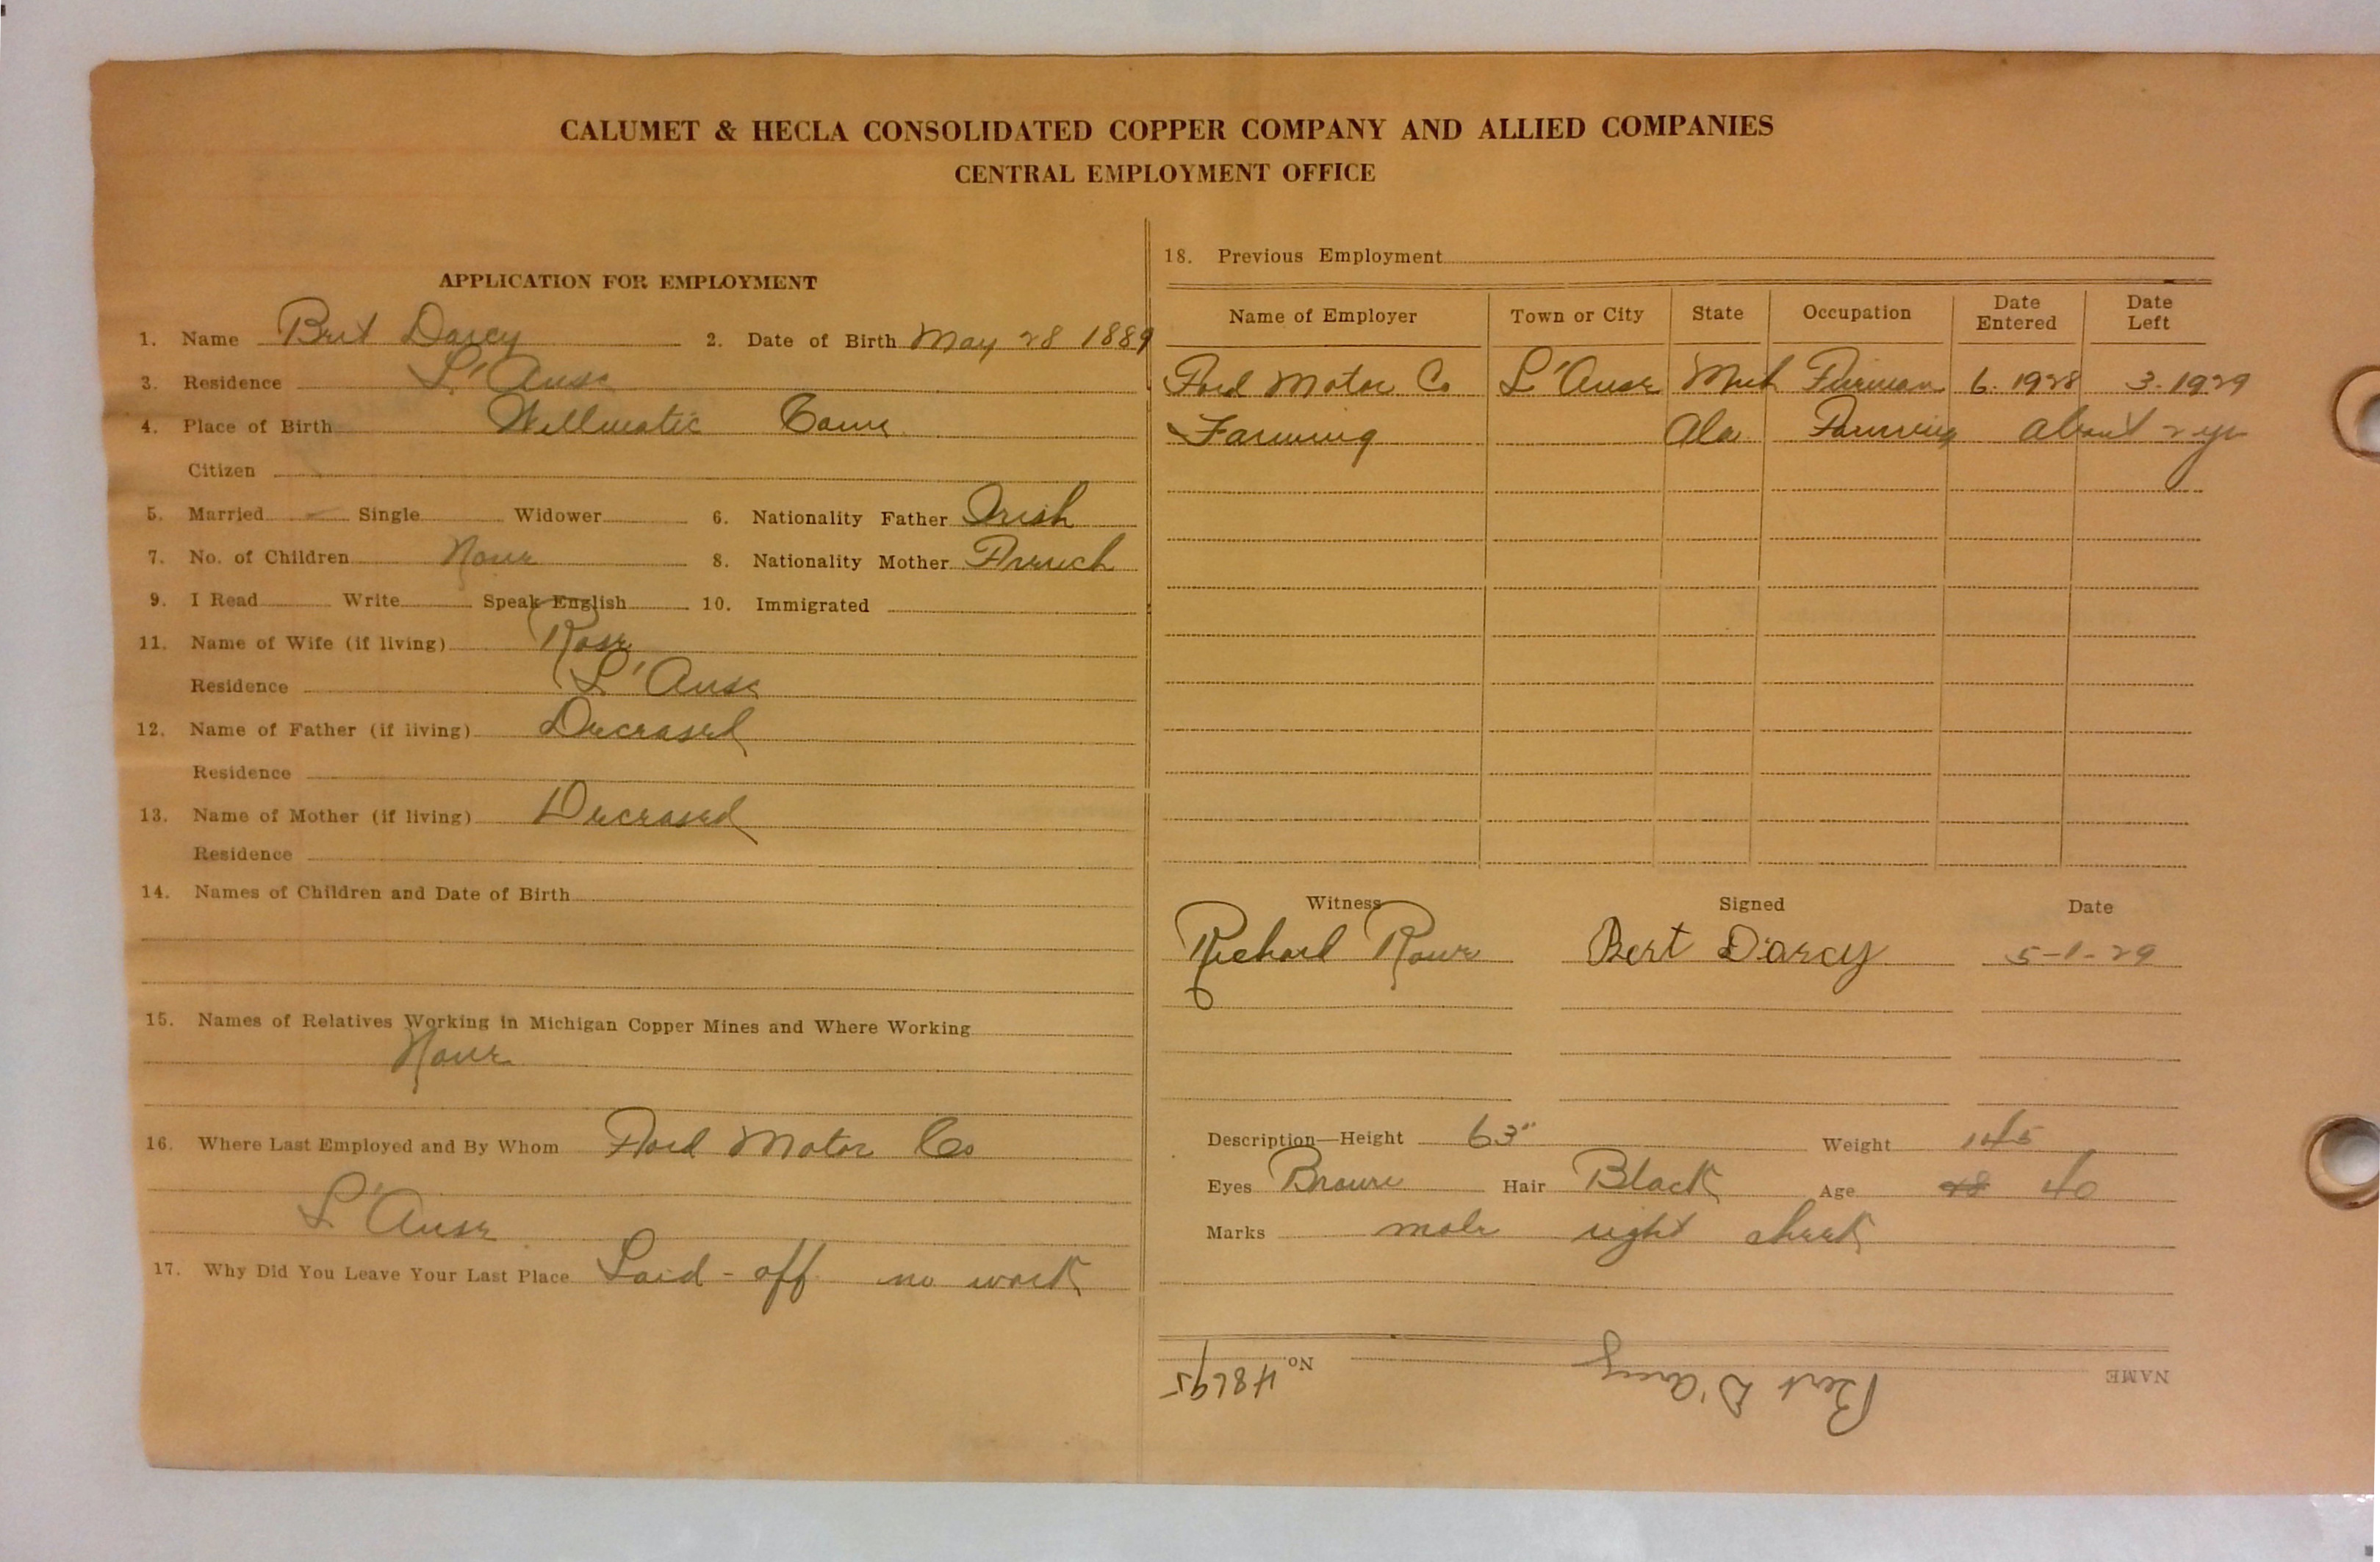 CALUMET & HECLA CONSOLIDATED COPPER COMPANY AND ALLIED COMPANIES
CENTRAL EMPLOYMENT OFFICE
APPLICATION FOR EMPLOYMENT
1. Name Bert Darcy 2. Date of Birth May 28 1889
3. Residence L'Anse
4. Place of Birth Willmatic Conn
Citizen
5. Married Single Widower 6. Nationality Father Irish
7. No. of Children None 8. Nationality Mother French
9. I Read Write Speak English 10. Immigrated
11. Name of Wife (if living) Rose
Residence L'Anse
12. Name of Father (if living) Deceased
Residence
13. Name of Mother (if living) Deceased
Residence
14. Names of Children and Date of Birth
15. Names of Relatives Working in Michigan Copper Mines and Where Working
None
16. Where Last Employed and By Whom Ford Motor Co
L'Anse
17. Why Did You Leave Your Last Place Laid-off no work
18. Previous Employment
Name of Employer Town or City State Occupation Date Entered Date Left
Ford Motor Co L'Anse Mich Fireman 6. 1928 3. 1929
Farming Ala Farming about 2 yr
Witness Signed Date
Richard Rowe Bert Darcy 5-1-29
Description—Height 63" Weight 145
Eyes Brown Hair Black Age 40
Marks mole right cheek
NAME Bert D'Arcy No.